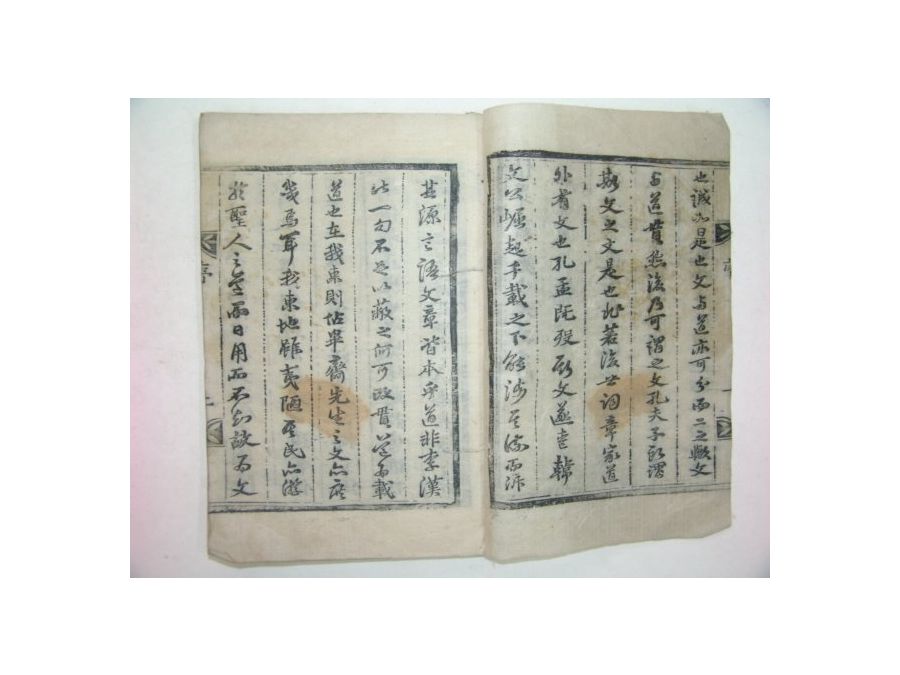 也誠如是也文与道亦可分而二之歟文
与道貫然後乃可謂之文孔夫子所謂
斯文之文是也非若後世詞章家道
外有文也孔孟旣歿斯文遂喪韓
文公崛起千載之下能泝其源而
其源言語文章皆本乎道非李漢
此一句不足以蔽之何可改貫道爲載
道也在我東則佔畢齋先生之文亦庶
幾焉耳我東地雖夷陋民亦游
於聖人之道而日用而不知故爲文
序